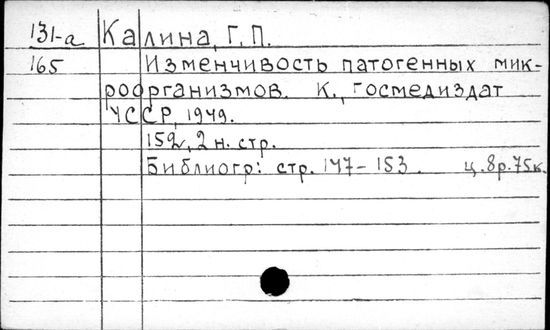 131-а Калина, Г. П.
165 Изменчивость патогенных мик-
роорганизмов. К., Госмедиздат
УССР, 1949.
152, 2 н. стр.
Библиогр: стр. 147-153. ц. 8р. 75к.